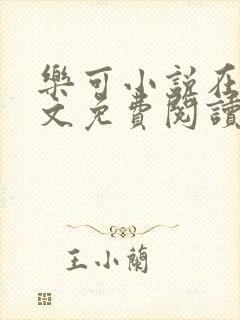 樂可小説在
文免費閱讀
王小蘭